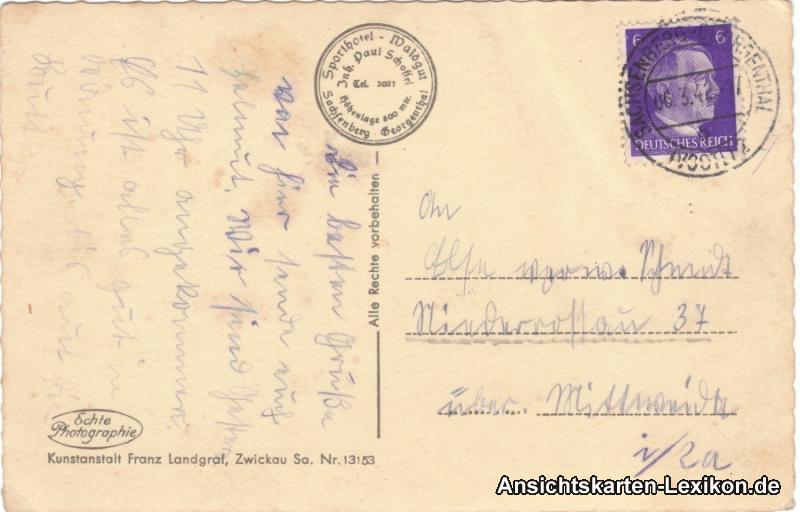 Sporthotel - Waldgut
Inh. Paul Schoffel
Tel. 2021
Höhenlage 800 mtr.
Sachsenberg - Georgenthal
6 6
DEUTSCHES REICH
SACHSENBERG-GEORGENTHAL
06.3.42
(VOGTL)
Die besten Grüße
von hier sendet euch
Helmut. Wir sind gestern
11 Uhr angekommen.
Es ist alles gut in
Alle Rechte vorbehalten
An
Else verw. Schmidt
Niederrossau 37
über Mittweida
i/Sa
Echte
Photographie
Kunstanstalt Franz Landgraf, Zwickau Sa. Nr. 13153
Ansichtskarten-Lexikon.de